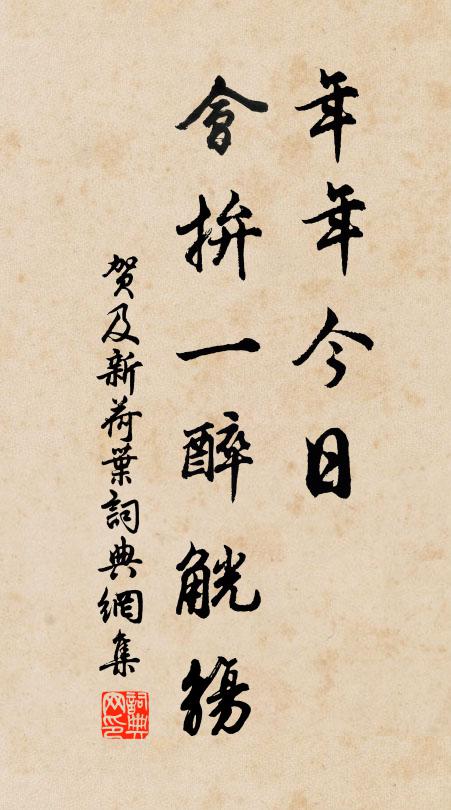 年年今日
會拼一醉觥觴
贺及新荷葉詞典網集
詞典网印